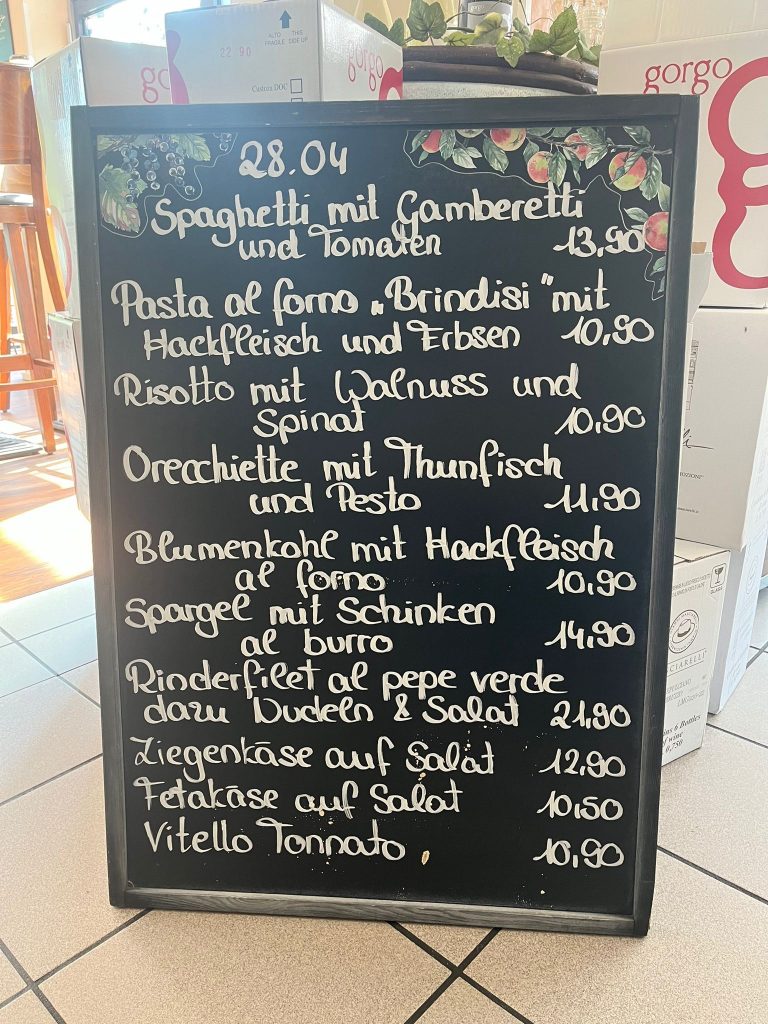 gorgo
22 90
ALTO
FRAGILE
THIS
SIDE UP
Custoza DOC
gorgo
gorgo
28.04
Spaghetti mit Gamberetti
und Tomaten 13,90
Pasta al forno „Brindisi" mit
Hackfleisch und Erbsen 10,90
Risotto mit Walnuss und
Spinat 10,90
Orecchiette mit Thunfisch
und Pesto 11,90
Blumenkohl mit Hackfleisch
al forno 10,90
Spargel mit Schinken
al burro 14,90
Rinderfilet al pepe verde
dazu Nudeln & Salat 21,90
Ziegenkäse auf Salat 12,90
Fetakäse auf Salat 10,50
Vitello Tonnato 10,90
GLASS
CIARELLI
6 Bottles
of wine
0,750